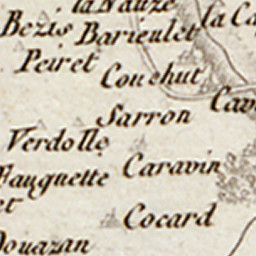 la Nauze
Bezis Barieulet la Ca
Peiret Couchut
Cav
Sarron
Verdolle
Caravin
Fauguette
et
Cocard
Douazan